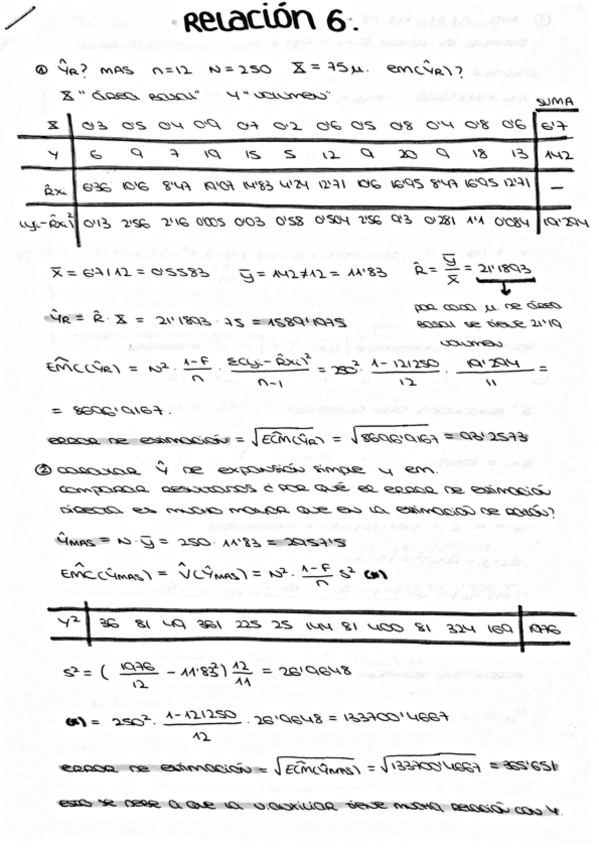 Relación 6.
① ŶR? MAS n=12 N=250 X=75µ. EM(ŶR)?
X "área basal" Y "volumen"
SUMA
X 0'3 0'5 0'4 0'9 0'7 0'2 0'6 0'5 0'8 0'4 0'8 0'6 6'7
Y 6 9 7 19 15 5 12 9 20 9 18 13 142
R̂xi 6'36 10'6 8'47 19'07 14'83 4'24 12'71 10'6 16'95 8'47 16'95 12'71 —
(yi-R̂xi)² 0'13 2'56 2'16 0'005 0'03 0'58 0'504 2'56 9'3 0'281 1'1 0'084 19'294
x̄ = 6'7/12 = 0'5583 ȳ = 142/12 = 11'83 R̂ = ȳ/x̄ = 21'1893
por cada µ de área
basal se tiene 21'19
volumen
ŶR = R̂ · X = 21'1893 · 75 = 1589'1975
ÊCM(ŶR) = N² · 1-f/n · Σ(yi-R̂xi)²/n-1 = 250² · 1-12/250/12 · 19'294/11 =
= 8696'9167.
ERROR DE estimación = √ÊCM(ŶR) = √8696'9167 = 93'2573
② calcular Ŷ de expansión simple y em.
comparar resultados ¿por qué el error de estimación
directa es mucho mayor que en la estimación de razón?
ŶMAS = N·ȳ = 250 · 11'83 = 2957'5
ÊMC(ŶMAS) = V̂(ŶMAS) = N² · 1-f/n S² (*)
Y² 36 81 49 361 225 25 144 81 400 81 324 169 1976
S² = ( 1976/12 - 11'83²) 12/11 = 26'9648
(*) = 250² · 1-12/250/12 · 26'9648 = 133700'4667
error de estimación = √ÊCM(ŶMAS) = √133700'4667 = 365'651
esto se debe a que la v.auxiliar tiene mucha relación con Y.